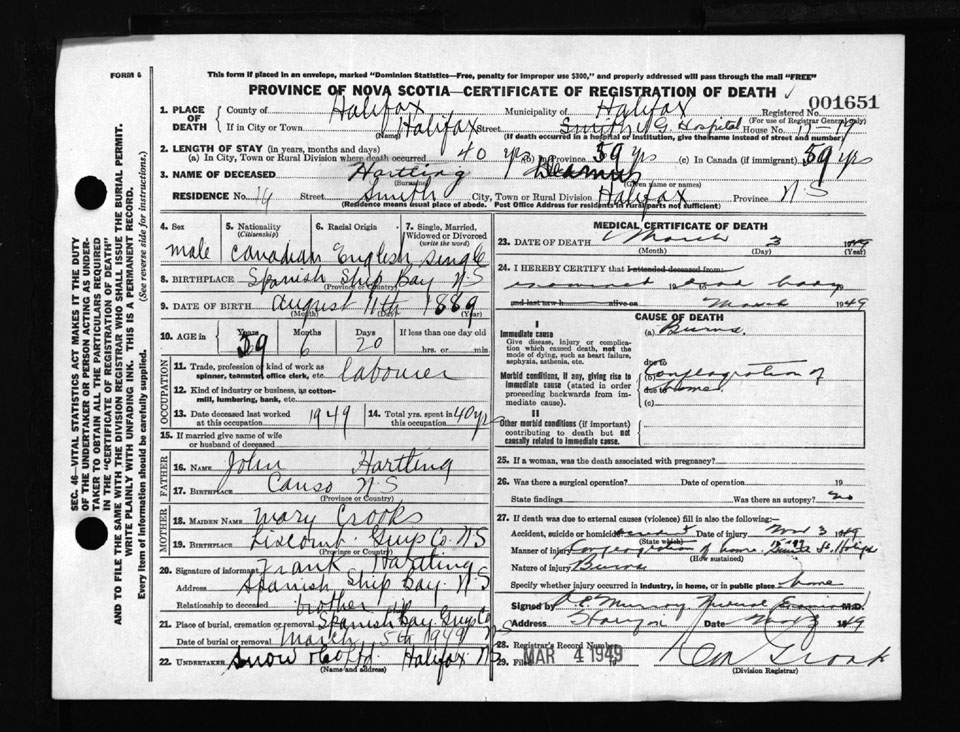 FORM 6
This form if placed in an envelope, marked "Dominion Statistics—Free, penalty for improper use $300," and properly addressed will pass through the mail "FREE"
PROVINCE OF NOVA SCOTIA—CERTIFICATE OF REGISTRATION OF DEATH
001651
1. PLACE OF DEATH County of Halifax Municipality of Halifax Registered No.
(For use of Registrar General only)
If in City or Town Halifax Street Smith V G Hospital House No. 17-19
(Name)
(If death occurred in a hospital or institution, give the name instead of street and number)
2. LENGTH OF STAY (in years, months and days)
(a) In City, Town or Rural Division where death occurred 40 yrs (b) In Province 59 yrs (c) In Canada (if immigrant) 59 yrs
3. NAME OF DECEASED Hartling
(Surname) (Given name or names)
RESIDENCE No. 14 Street Smith City, Town or Rural Division Halifax Province N S
(Residence means usual place of abode. Post Office Address for residents in rural parts not sufficient)
4. Sex
male
5. Nationality
(Citizenship)
Canadian
6. Racial Origin
English
7. Single, Married, Widowed or Divorced
(write the word)
Single
8. BIRTHPLACE Spanish Ship Bay N-S
(Province or Country)
9. DATE OF BIRTH August 11th 1889
(Month) (Day) (Year)
10. AGE in Years 59 Months 6 Days 20 If less than one day old
hrs. or min.
OCCUPATION
11. Trade, profession or kind of work as spinner, teamster, office clerk, etc. labourer
12. Kind of industry or business, as cotton-mill, lumbering, bank, etc.
13. Date deceased last worked at this occupation 1949
14. Total yrs. spent in this occupation 40 yrs
15. If married give name of wife or husband of deceased
FATHER
16. NAME John Hartling
17. BIRTHPLACE Canso N-S
(Province or Country)
MOTHER
18. MAIDEN NAME Mary Crooks
19. BIRTHPLACE Liscomb Guys Co. N-S
(Province or Country)
20. Signature of informant Frank Hartling
Address Spanish Ship Bay. N-S
Relationship to deceased brother
21. Place of burial, cremation or removal Spanish Bay Guys Co N-S
Date of burial or removal March 5th 1949
22. UNDERTAKER Snow & Co Ltd. Halifax N-S
(Name and address)
MEDICAL CERTIFICATE OF DEATH
23. DATE OF DEATH March 3 1949
(Month) (Day) (Year)
24. I HEREBY CERTIFY that I attended deceased from:
examined 19 dead body
and last saw h alive on March 1949
CAUSE OF DEATH
I
Immediate cause
Give disease, injury or complication which caused death, not the mode of dying, such as heart failure, asphyxia, asthenia, etc.
(a) Burns.
due to
Morbid conditions, if any, giving rise to immediate cause (stated in order proceeding backwards from immediate cause).
(b) Conflagration of
due to home
(c)
II
Other morbid conditions (if important) contributing to death but not causally related to immediate cause.
25. If a woman, was the death associated with pregnancy?
26. Was there a surgical operation? Date of operation 19
State findings Was there an autopsy? no
27. If death was due to external causes (violence) fill in also the following:—
Accident, suicide or homicide accident Date of injury Mar 3 1949
(State which)
Manner of injury Conflagration of home 17-19 Smith St. Halifax
(How sustained)
Nature of injury Burns
Specify whether injury occurred in industry, in home, or in public place home
Signed by Murray, Medical Examiner M.D.
Address Halifax Date 1949
28. Registrar's Record Number
29. Filed MAR 4 1949
(Division Registrar)
SEC. 46—VITAL STATISTICS ACT MAKES IT THE DUTY
OF THE UNDERTAKER OR PERSON ACTING AS UNDERTAKER TO OBTAIN ALL THE PARTICULARS REQUIRED
IN THE "CERTIFICATE OF REGISTRATION OF DEATH"
AND TO FILE THE SAME WITH THE DIVISION REGISTRAR WHO SHALL ISSUE THE BURIAL PERMIT.
WRITE PLAINLY WITH UNFADING INK. THIS IS A PERMANENT RECORD.
Every item of information should be carefully supplied. (See reverse side for instructions.)